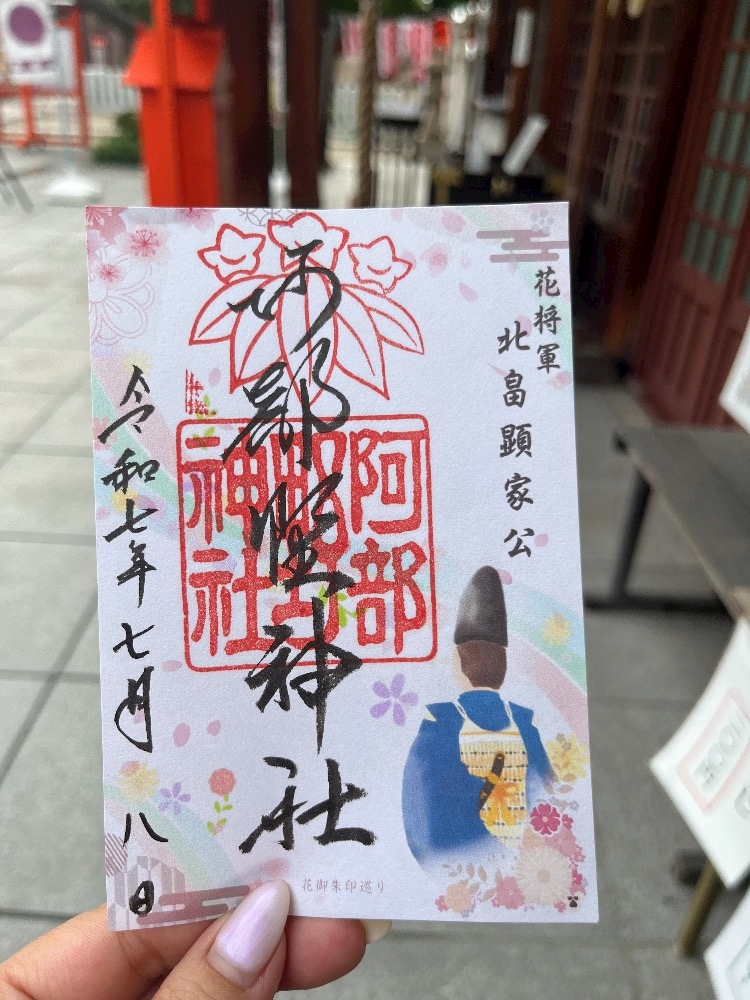 花将軍
北畠顕家公
阿部野神社
阿部野神社
令和七年七月八日
花御朱印巡り